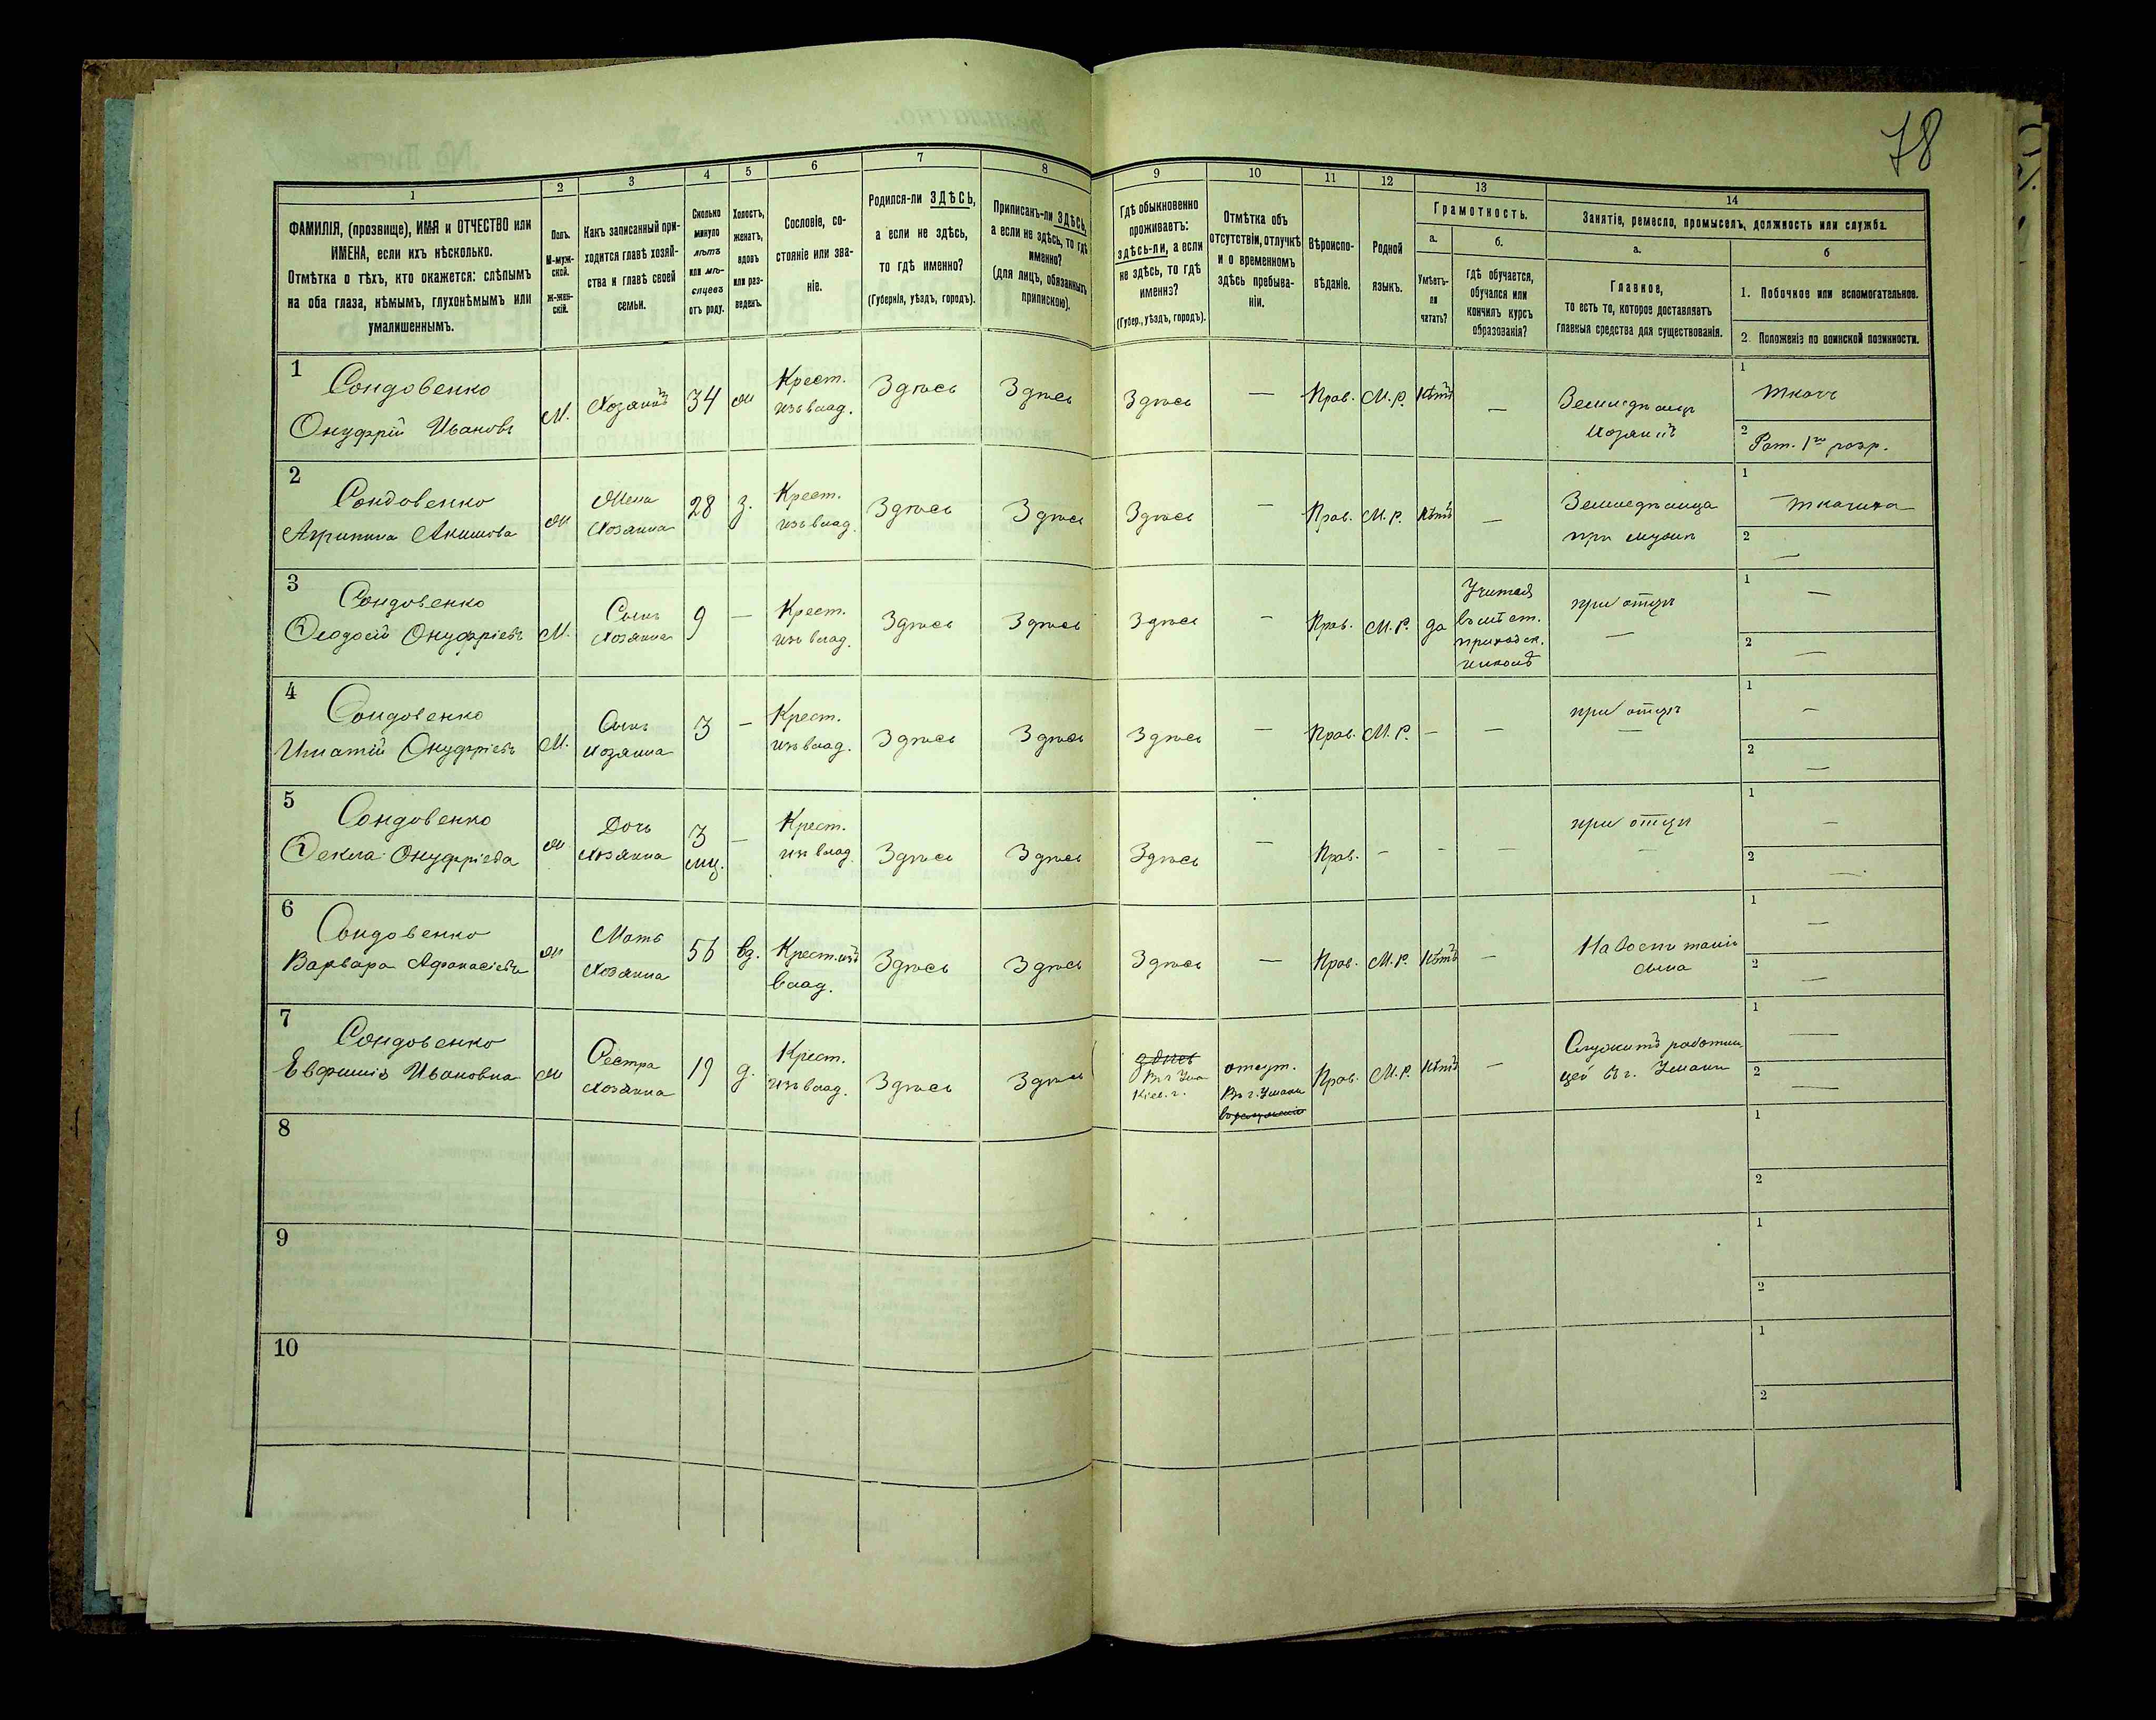 78
1
2
3
4
5
6
7
8
9
10
11
12
13
14
ФАМИЛІЯ, (прозвище), ИМЯ и ОТЧЕСТВО или
ИМЕНА, если ихъ нѣсколько.
Отмѣтка о тѣхъ, кто окажется: слѣпымъ
на оба глаза, нѣмымъ, глухонѣмымъ или
умалишеннымъ.
Полъ.
М-муж-
ской.
ж-жен-
скій.
Какъ записанный при-
ходится главѣ хозяй-
ства и главѣ своей
семьи.
Сколько
минуло
лѣтъ
или мѣ-
сяцевъ
отъ роду.
Холостъ,
женатъ,
вдовъ
или раз-
веденъ.
Сословіе, со-
стояніе или зва-
ніе.
Родился-ли ЗДѢСЬ,
а если не здѣсь,
то гдѣ именно?
(Губернія, уѣздъ, городъ).
Приписанъ-ли ЗДѢСЬ,
а если не здѣсь, то гдѣ
именно?
(для лицъ, обязанныхъ
припискою).
Гдѣ обыкновенно
проживаетъ:
здѣсь-ли, а если
не здѣсь, то гдѣ
именно?
(Губер., уѣздъ, городъ).
Отмѣтка объ
отсутствіи, отлучкѣ
и о временномъ
здѣсь пребыва-
ніи.
Вѣроиспо-
вѣданіе.
Родной
языкъ.
Грамотность.
а.
Умѣетъ-
ли
читать?
б.
гдѣ обучается,
обучался или
кончилъ курсъ
образованія?
Занятіе, ремесло, промыселъ, должность или служба.
а.
Главное,
то есть то, которое доставляетъ
главныя средства для существованія.
б
1. Побочное или вспомогательное.
2. Положеніе по воинской повинности.
1
Сондовенко
Онуфрій Ивановъ
М.
Хозяинъ
34
ж
Крест.
изъ влад.
Здѣсь
Здѣсь
Здѣсь
—
Прав.
М.Р.
Нѣтъ
—
Земледѣлецъ
Хозяинъ
1
ткачъ
2
Рат. 1го разр.
2
Сондовенко
Агрипина Акимова
ж
Жена
Хозяина
28
з.
Крест.
изъ влад.
Здѣсь
Здѣсь
Здѣсь
—
Прав.
М.Р.
Нѣтъ
—
Земледѣлица
при мужѣ
1
ткачиха
2
—
3
Сондовенко
Ѳеодосій Онуфріевъ
М.
Сынъ
Хозяина
9
—
Крест.
изъ влад.
Здѣсь
Здѣсь
Здѣсь
—
Прав.
М.Р.
да
Учится
въ мѣст.
приходск.
школѣ
при отцѣ
—
1
—
2
—
4
Сондовенко
Игнатій Онуфріевъ
М.
Сынъ
Хозяина
3
—
Крест.
изъ влад.
Здѣсь
Здѣсь
Здѣсь
—
Прав.
М.Р.
—
—
при отцѣ
—
1
—
2
—
5
Сондовенко
Ѳекла Онуфріева
ж
Дочь
Хозяина
3
мц.
—
Крест.
изъ влад.
Здѣсь
Здѣсь
Здѣсь
—
Прав.
—
—
—
при отцѣ
—
1
—
2
—
6
Сондовенко
Варвара Афанасіева
ж
Мать
Хозяина
56
вд.
Крест. изъ
влад.
Здѣсь
Здѣсь
Здѣсь
—
Прав.
М.Р.
Нѣтъ
—
На
сына
1
—
2
—
7
Сондовенко
Евфимія Ивановна
ж
Сестра
Хозяина
19
д.
Крест.
изъ влад.
Здѣсь
Здѣсь
здѣсь
Въ г. Ума
Кіев. г.
отсут.
Въ г. Умани
Прав.
М.Р.
Нѣтъ
—
Служитъ работни
цей въ г. Умани
1
—
2
—
8
1
2
9
1
2
10
1
2